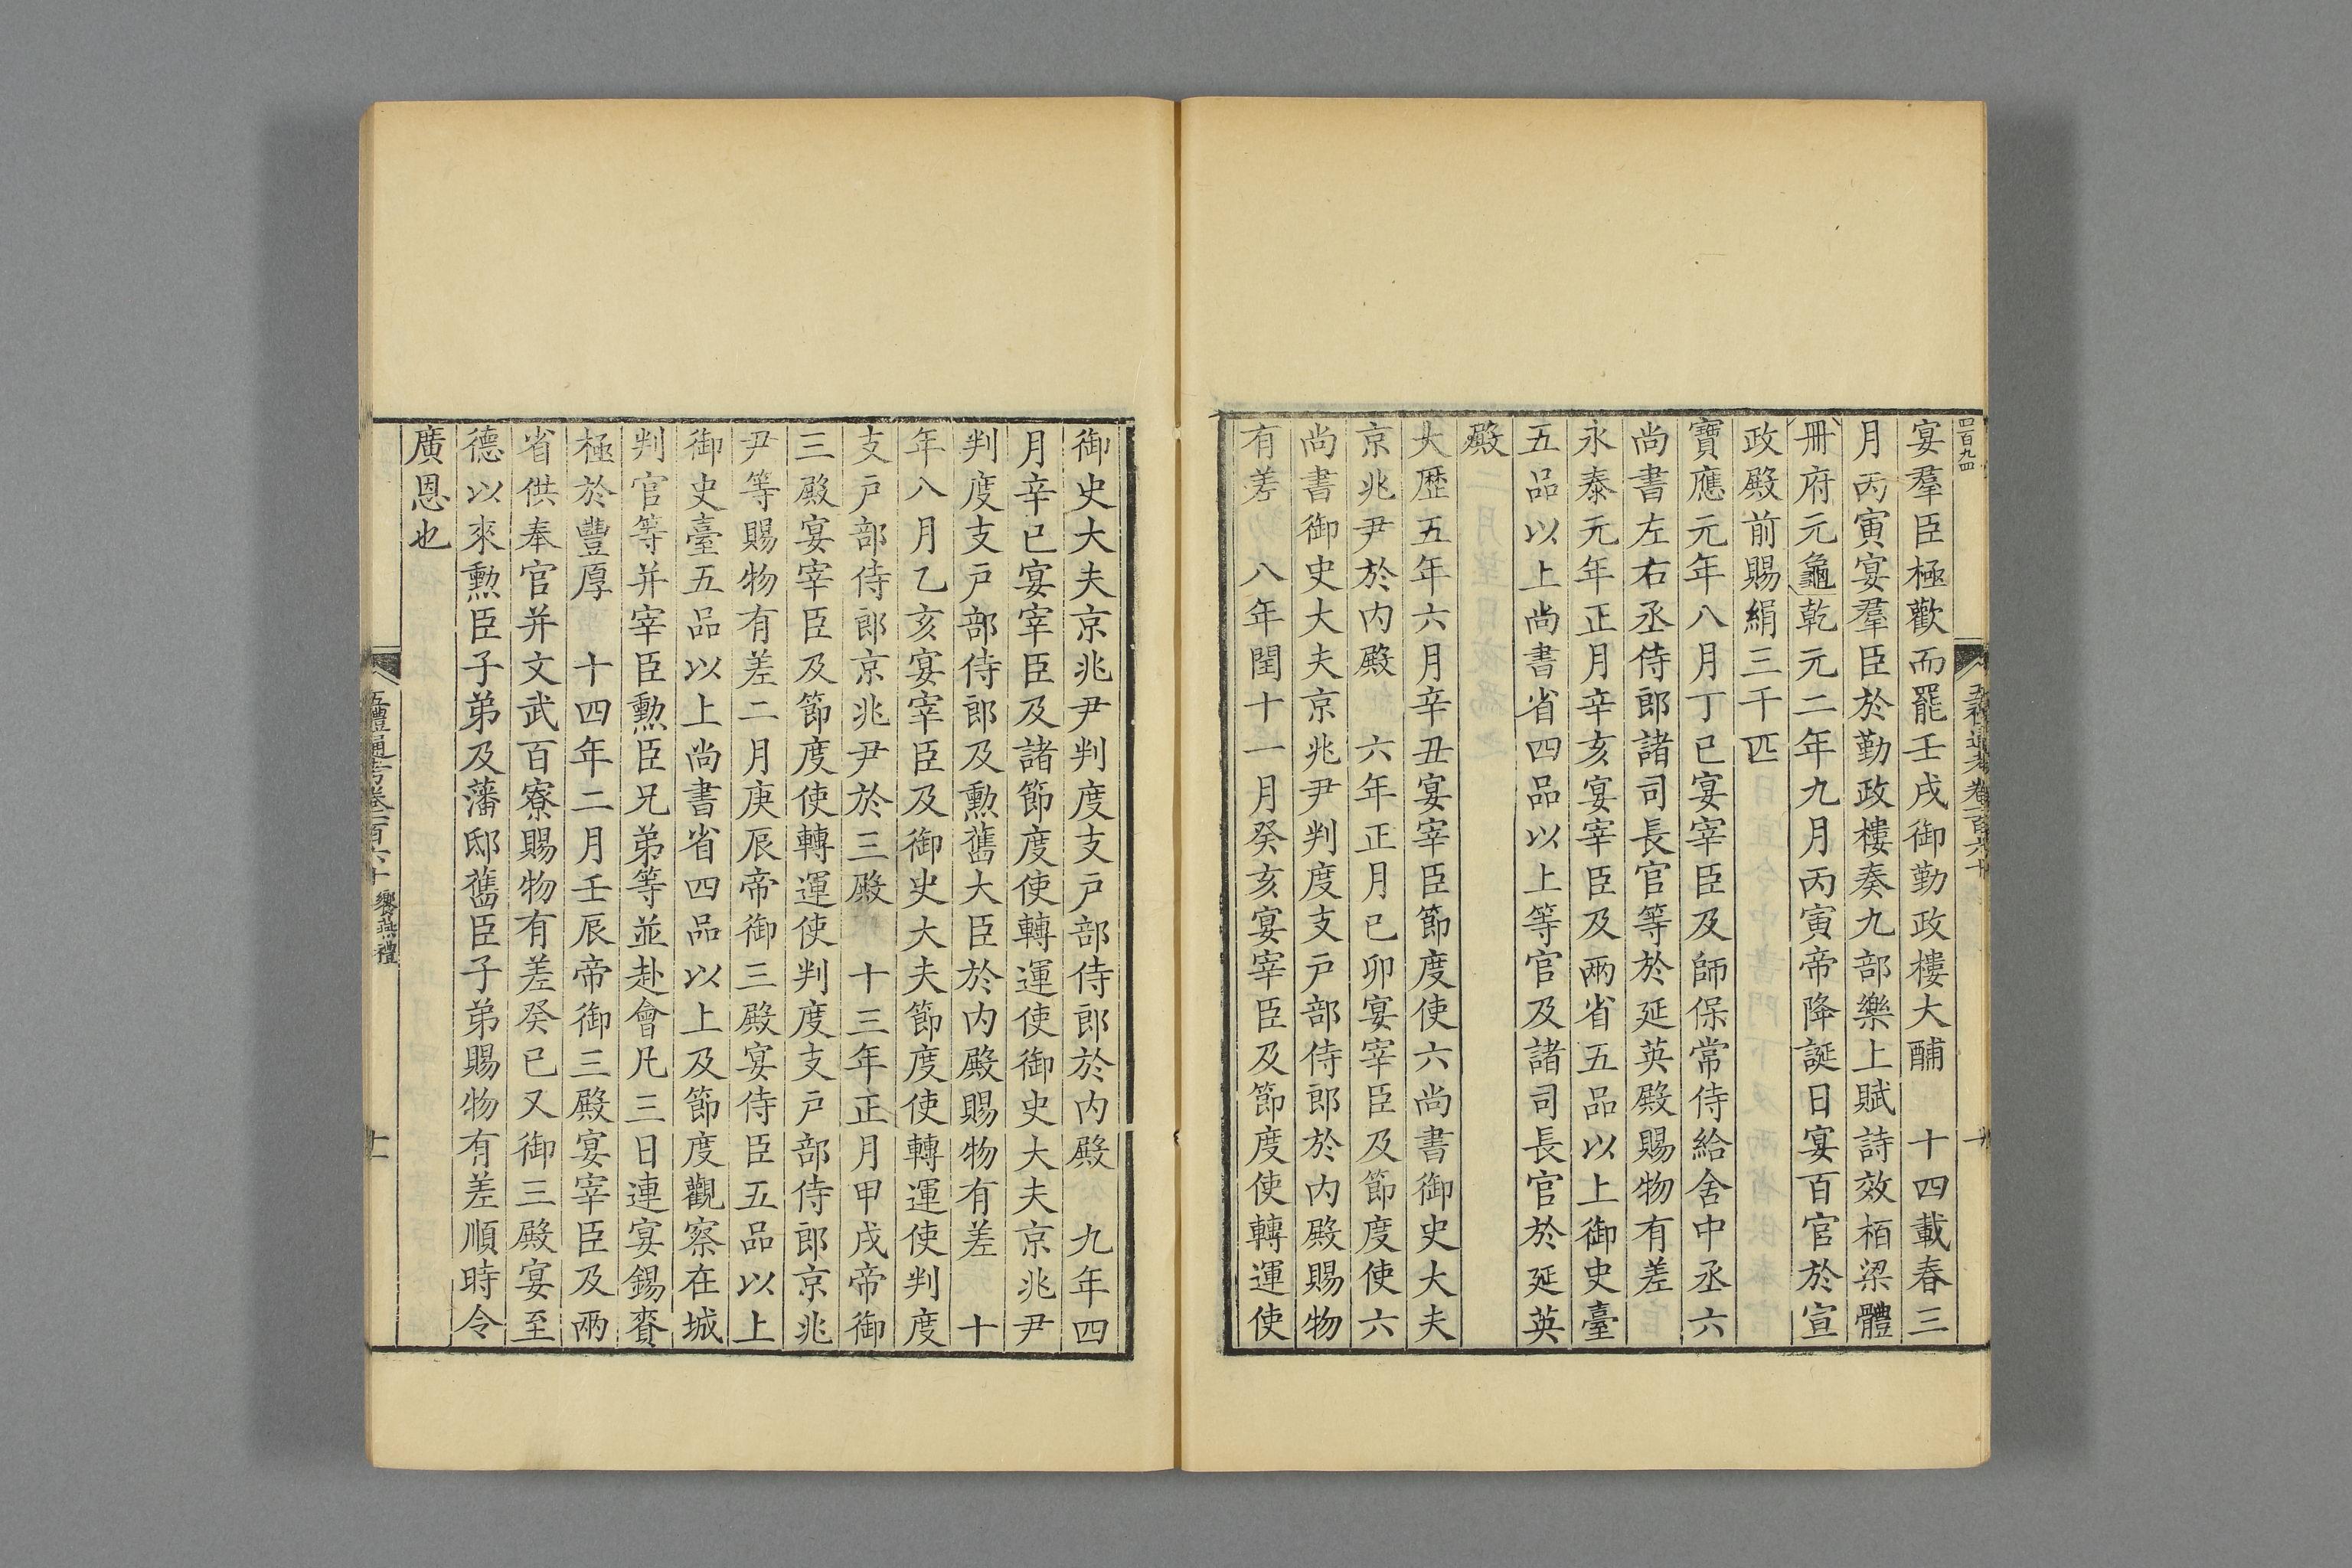 四百九四
宴羣臣極歡而罷壬戌御勤政樓大酺　十四載春三
月丙寅宴羣臣於勤政樓奏九部樂上賦詩效栢梁體
冊府元龜乾元二年九月丙寅帝降誕日宴百官於宣
政殿前賜絹三千匹
寶應元年八月丁巳宴宰臣及師保常侍給舍中丞六
尚書左右丞侍郎諸司長官等於延英殿賜物有差
永泰元年正月辛亥宴宰臣及兩省五品以上御史臺
五品以上尚書省四品以上等官及諸司長官於延英
殿
大歴五年六月辛丑宴宰臣節度使六尚書御史大夫
京兆尹於內殿　六年正月己卯宴宰臣及節度使六
尚書御史大夫京兆尹判度支戸部侍郎於內殿賜物
有差　八年閏十一月癸亥宴宰臣及節度使轉運使
御史大夫京兆尹判度支戸部侍郎於內殿　九年四
月辛巳宴宰臣及諸節度使轉運使御史大夫京兆尹
判度支戸部侍郎及勲舊大臣於內殿賜物有差　十
年八月乙亥宴宰臣及御史大夫節度使轉運使判度
支戸部侍郎京兆尹於三殿　十三年正月甲戌帝御
三殿宴宰臣及節度使轉運使判度支戸部侍郎京兆
尹等賜物有差二月庚辰帝御三殿宴侍臣五品以上
御史臺五品以上尚書省四品以上及節度觀察在城
判官等并宰臣勲臣兄弟等並赴會凡三日連宴錫賚
極於豐厚　十四年二月壬辰帝御三殿宴宰臣及兩
省供奉官并文武百寮賜物有差癸巳又御三殿宴至
德以來勲臣子弟及藩邸舊臣子弟賜物有差順時令
廣恩也
五禮通考卷一百六十　饗燕禮　十